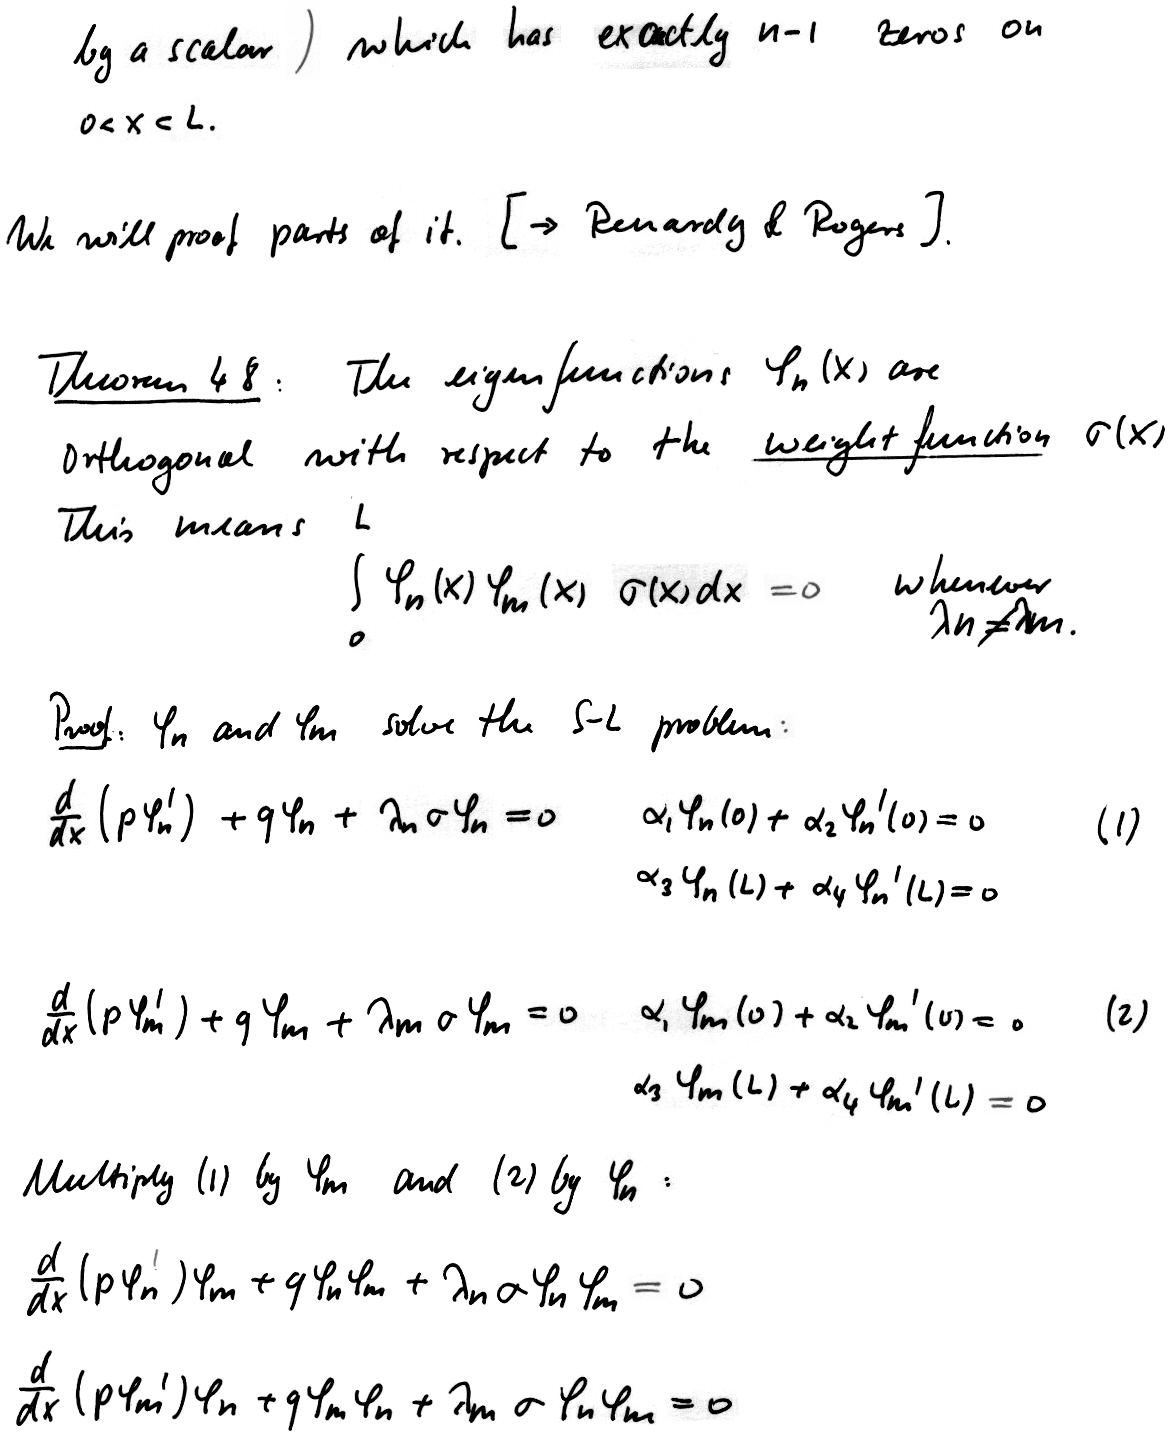 by a scalar) which has exactly n-1 zeros on
0<x<L.
We will proof parts of it. [→ Renardy & Rogers].
Theorem 48: The eigenfunctions φₙ(x) are
orthogonal with respect to the weight function σ(x)
This means
∫₀ᴸ φₙ(x) φₘ(x) σ(x) dx = 0 whenever λₙ ≠ λₘ.
Proof: φₙ and φₘ solve the S-L problem:
d/dx (p φₙ') + q φₙ + λₙ σ φₙ = 0 α₁ φₙ(0) + α₂ φₙ'(0) = 0 (1)
α₃ φₙ(L) + α₄ φₙ'(L) = 0
d/dx (p φₘ') + q φₘ + λₘ σ φₘ = 0 α₁ φₘ(0) + α₂ φₘ'(0) = 0 (2)
α₃ φₘ(L) + α₄ φₘ'(L) = 0
Multiply (1) by φₘ and (2) by φₙ:
d/dx (p φₙ') φₘ + q φₙ φₘ + λₙ σ φₙ φₘ = 0
d/dx (p φₘ') φₙ + q φₘ φₙ + λₘ σ φₙ φₘ = 0